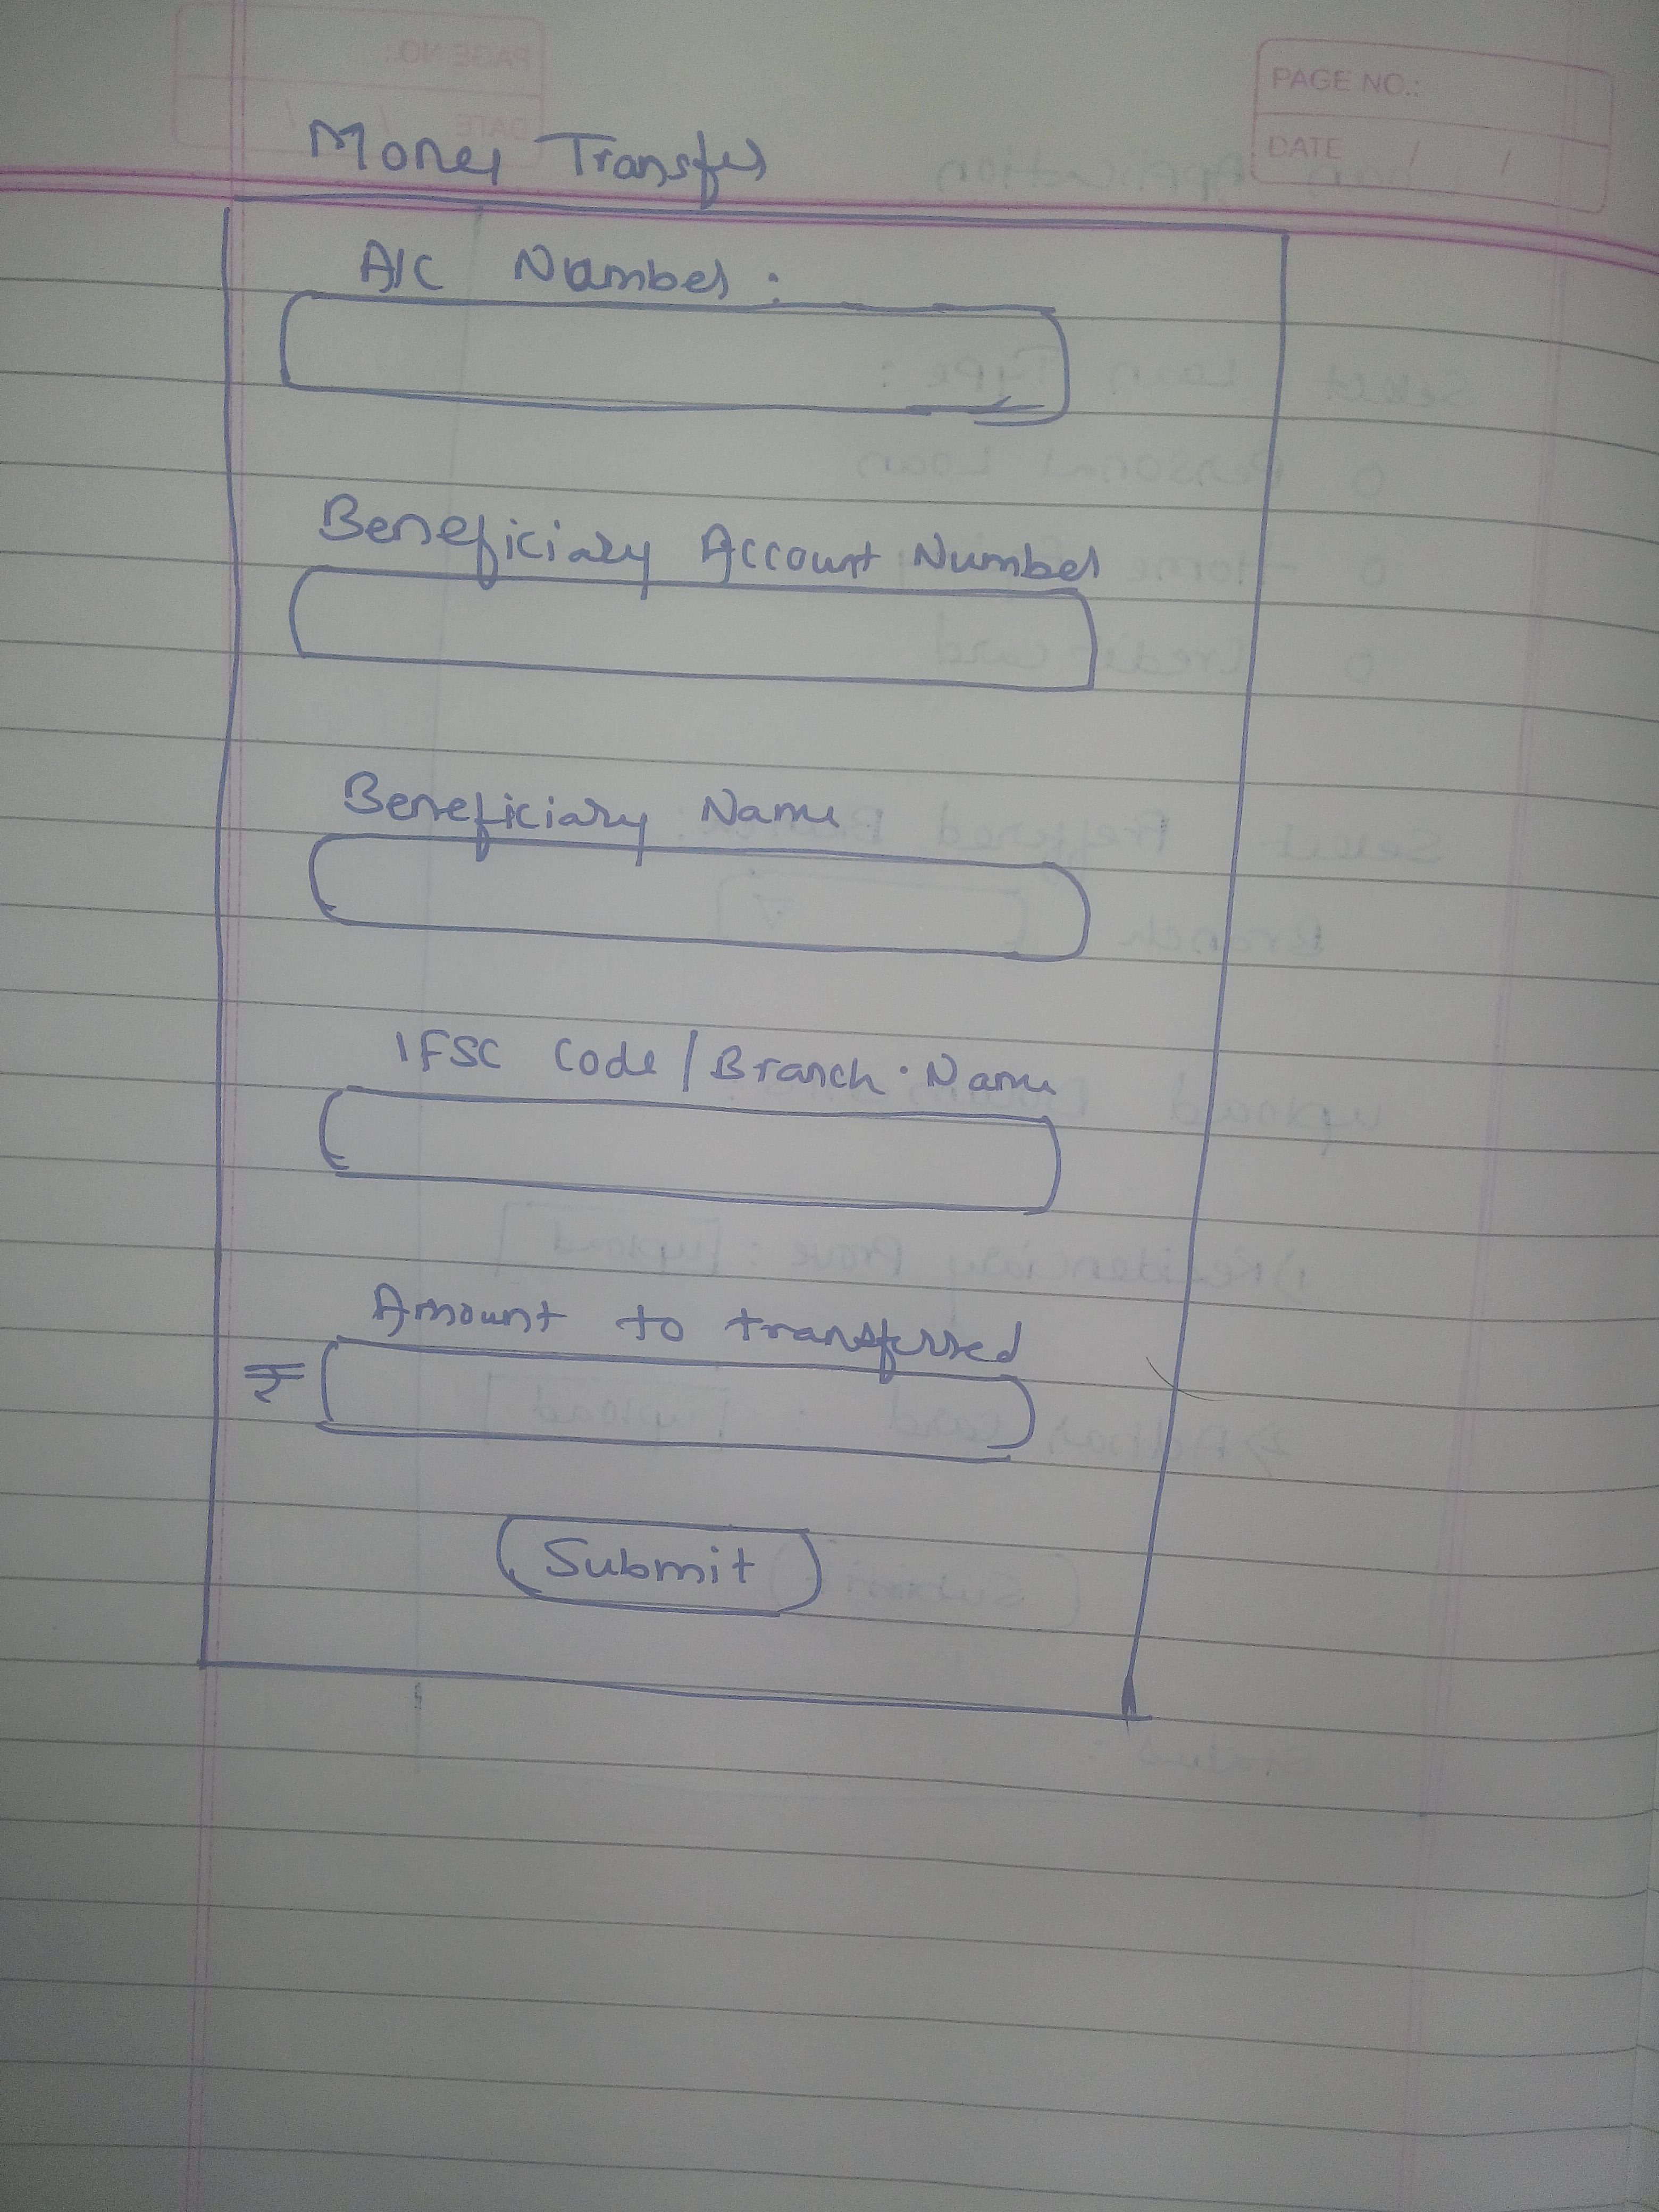 PAGE NO.:
DATE / /
Money Transfer
A/C Number :
Beneficiary Account Number
Beneficiary Name
IFSC Code / Branch . Name
Amount to transferred
₹
Submit